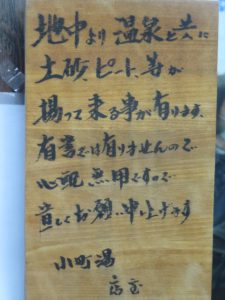 地中より温泉と共に
土砂ピート、等が
揚って来る事が有ります、
有害では有りませんので
心配無用ですので
宜しくお願い申し上げます
小町湯
店主